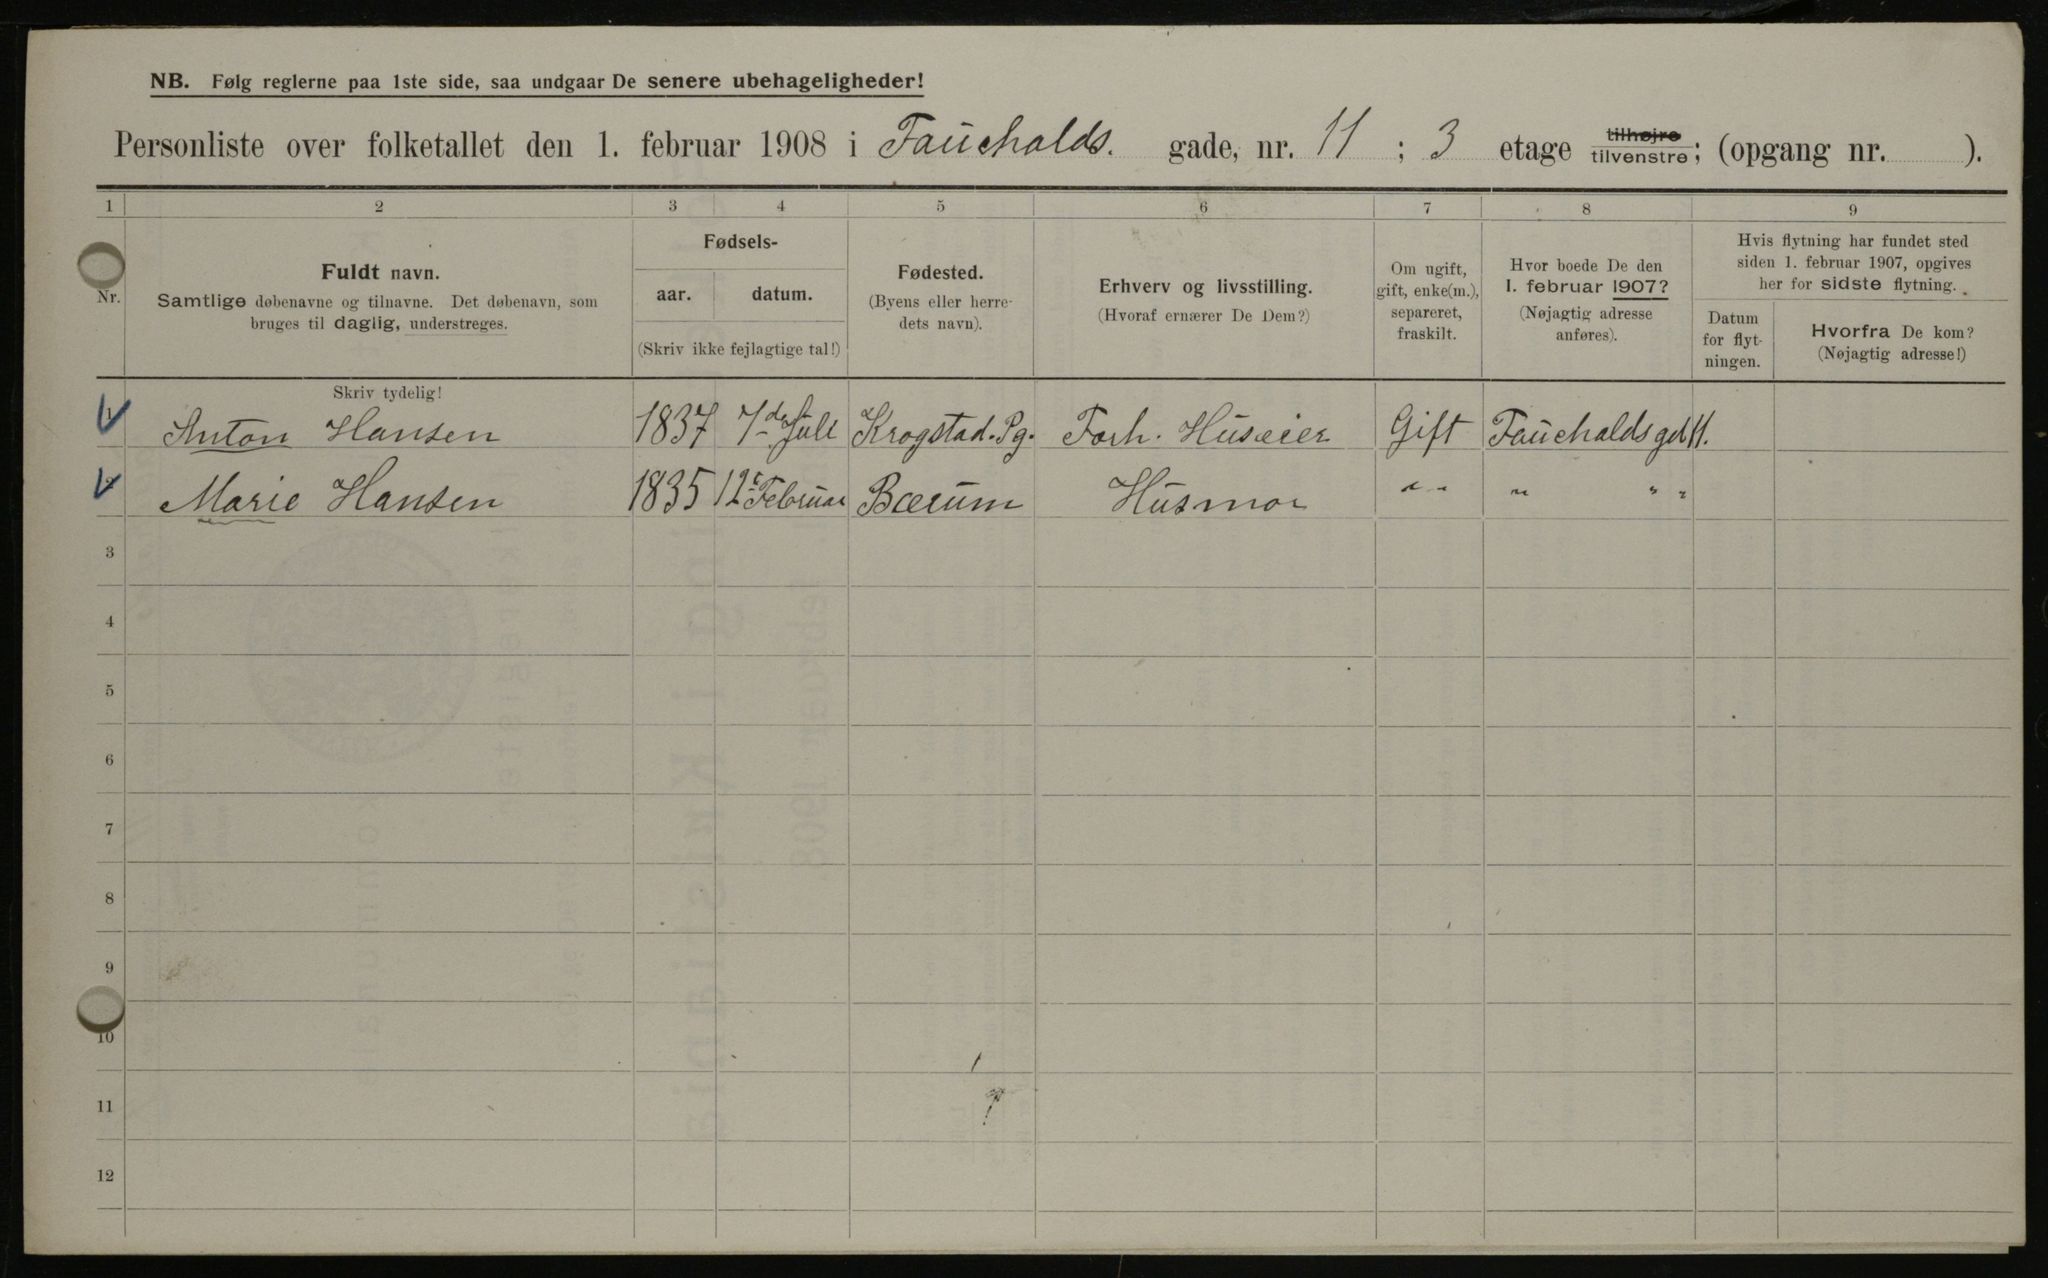 NB. Følg reglerne paa 1ste side, saa undgaar De senere ubehageligheder!
Personliste over folketallet den 1. februar 1908 i Faucholds. gade, nr. 11 ; 3 etage tilhøjre tilvenstre; (opgang nr. ).
1 2 3 4 5 6 7 8 9
Nr.
Fuldt navn.
Samtlige døbenavne og tilnavne. Det døbenavn, som
bruges til daglig, understreges.
Fødsels-
aar. datum.
(Skriv ikke fejlagtige tal!)
Fødested.
(Byens eller herre-
dets navn).
Erhverv og livsstilling.
(Hvoraf ernærer De Dem?)
Om ugift,
gift, enke(m.),
separeret,
fraskilt.
Hvor boede De den
1. februar 1907?
(Nøjagtig adresse
anføres).
Hvis flytning har fundet sted
siden 1. februar 1907, opgives
her for sidste flytning.
Datum
for flyt-
ningen.
Hvorfra De kom?
(Nøjagtig adresse!)
Skriv tydelig!
1 Anton Hansen 1837 7de Juli Krogstad. Pg. Forh. Huseier Gift Faucholds gd 11.
2 Marie Hansen 1835 12te Februar Bærum Husmor " " " " "
3
4
5
6
7
8
9
10
11
12